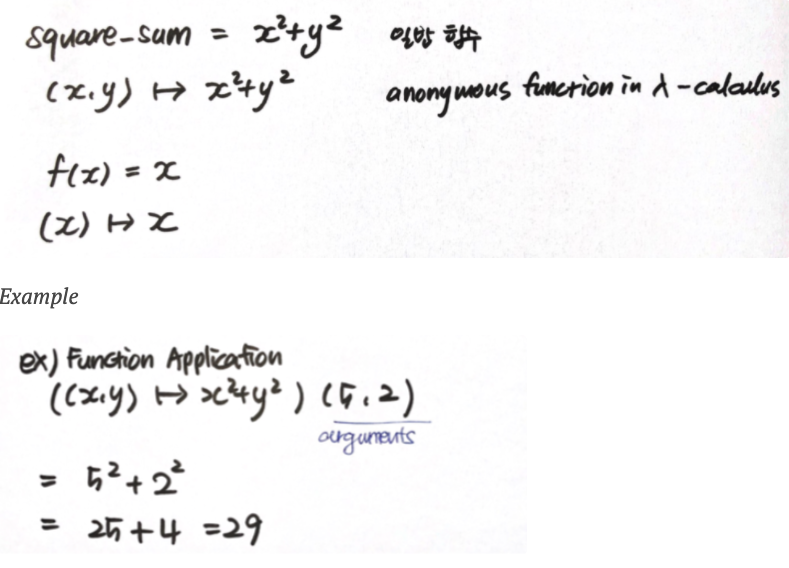 square-sum = x²+y² 일반 함수
(x,y) ↦ x²+y² anonymous function in λ-calculus
f(x) = x
(x) ↦ x
Example
ex) Function Application
((x,y) ↦ x²+y²) (5,2)
arguments
= 5²+2²
= 25+4 =29